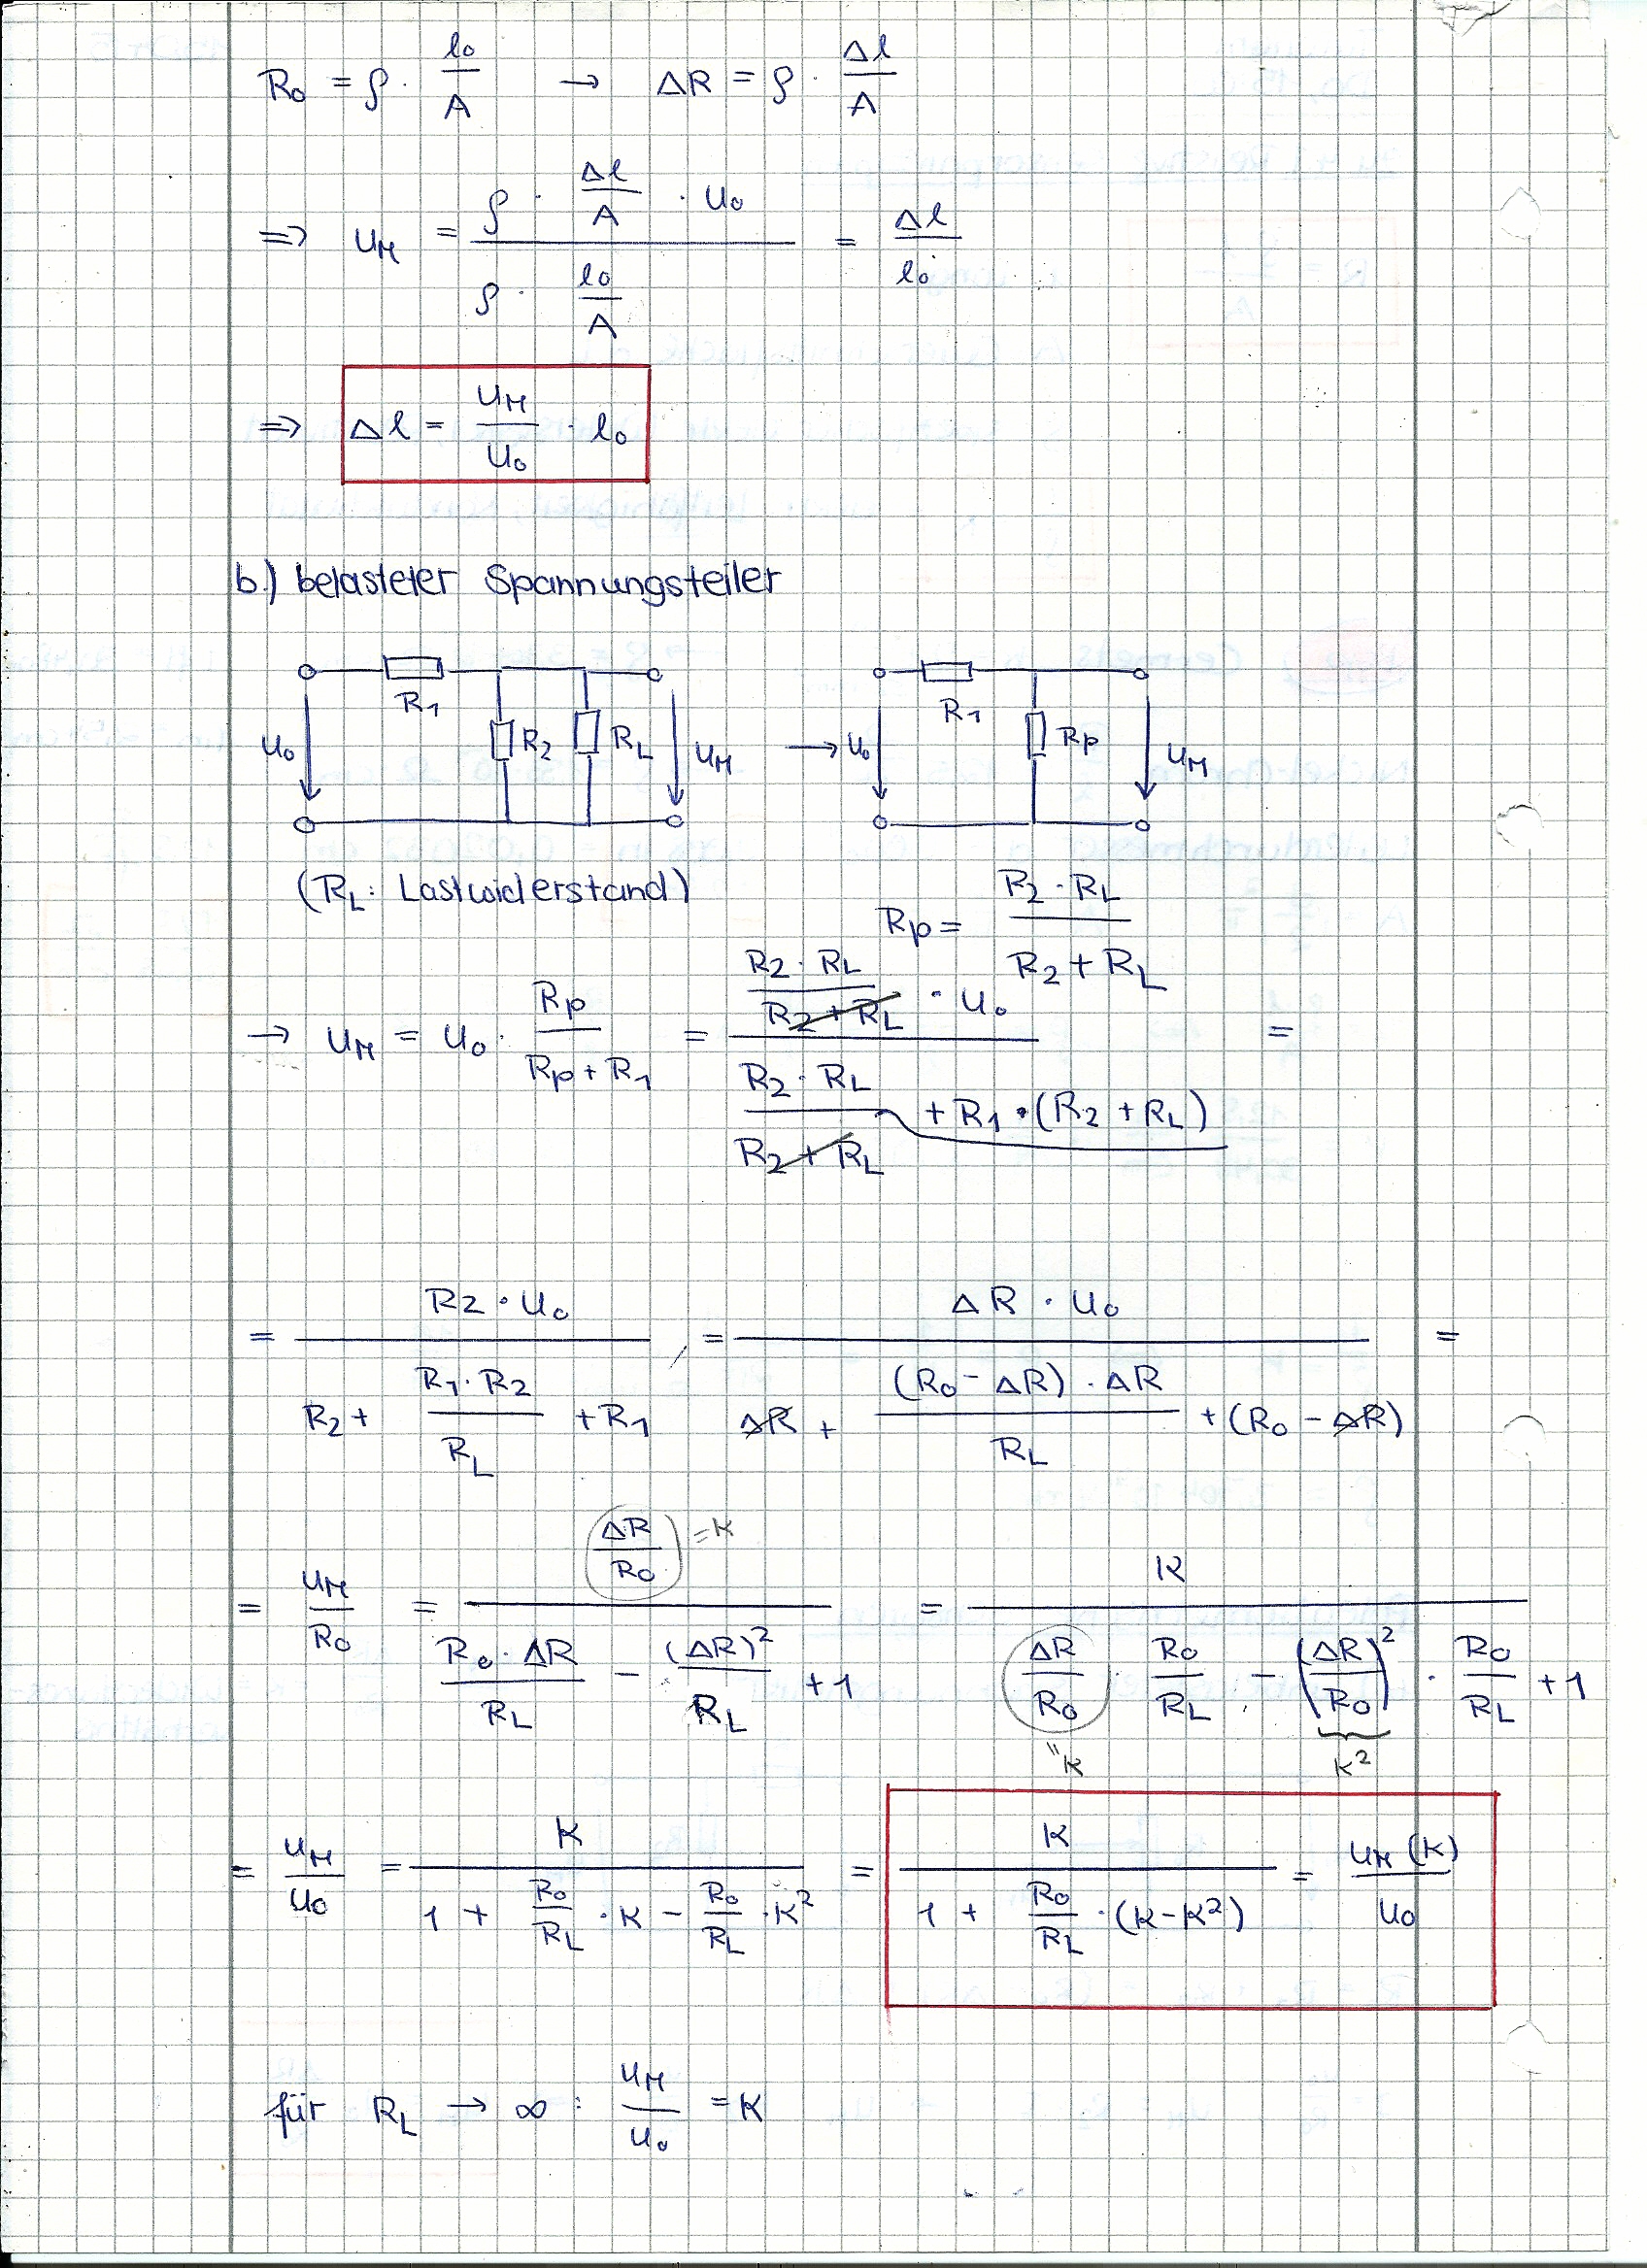 R₀ = ρ · l₀/A → ΔR = ρ · Δl/A
=> U_M = (ρ · Δl/A · U₀)/(ρ · l₀/A) = Δl/l₀
=> Δl = U_M/U₀ · l₀
b.) belasteter Spannungsteiler
U₀ R₁ R₂ R_L U_M → U₀ R₁ Rp U_M
(R_L: Lastwiderstand)
Rp = (R₂ · R_L)/(R₂ + R_L)
→ U_M = U₀ · Rp/(Rp + R₁) = ((R₂ · R_L)/(R₂ + R_L) · U₀)/((R₂ · R_L)/(R₂ + R_L) + R₁ · (R₂ + R_L)) =
= (R₂ · U₀)/(R₂ + (R₁ · R₂)/R_L + R₁) = (ΔR · U₀)/(ΔR + ((R₀ - ΔR) · ΔR)/R_L + (R₀ - ΔR)) =
= U_M/R₀ = (ΔR/R₀ = K)/((R₀ · ΔR)/R_L - (ΔR)²/R_L + 1) = K/(ΔR/R₀ · R₀/R_L - (ΔR/R₀)² · R₀/R_L + 1)
"K K²
= U_M/U₀ = K/(1 + R₀/R_L · K - R₀/R_L · K²) = K/(1 + R₀/R_L · (K - K²)) = U_M(K)/U₀
für R_L → ∞ : U_M/U₀ = K